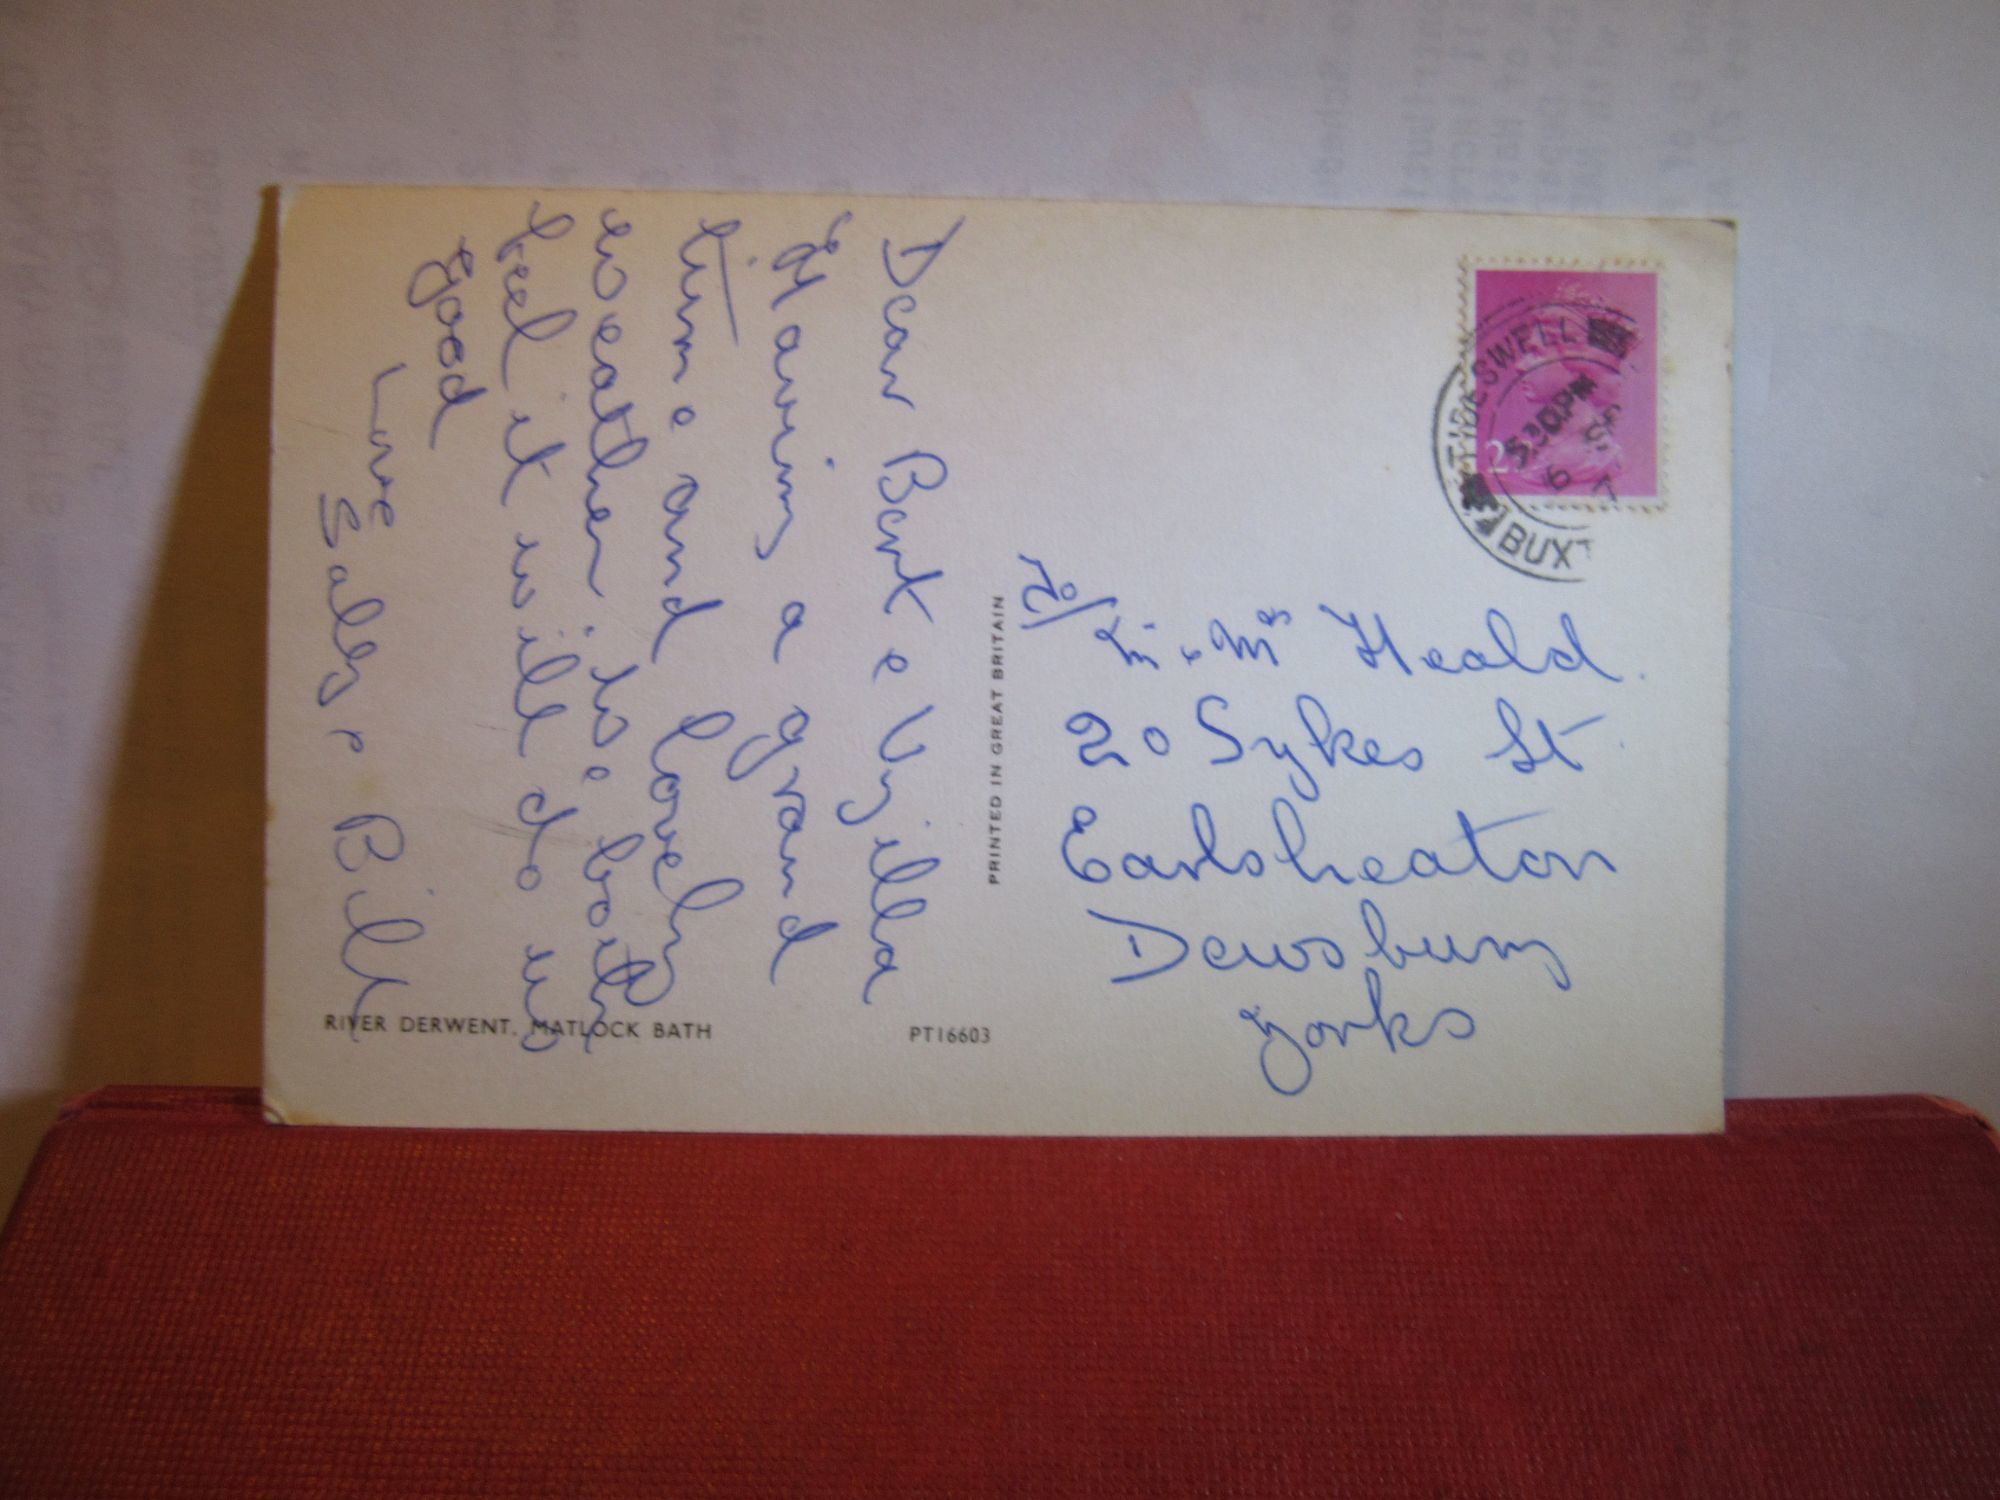 Dear Bert e Vyilla
Having a grand
time and lovely
weather, we both
feel it will do us
good
Love
Sally e Bill
PRINTED IN GREAT BRITAIN
RIVER DERWENT. MATLOCK BATH
PT16603
TIDESWELL
BUXT
To/
Mr e Mrs Heald.
20 Sykes St.
Earlsheaton
Dewsbury
Yorks